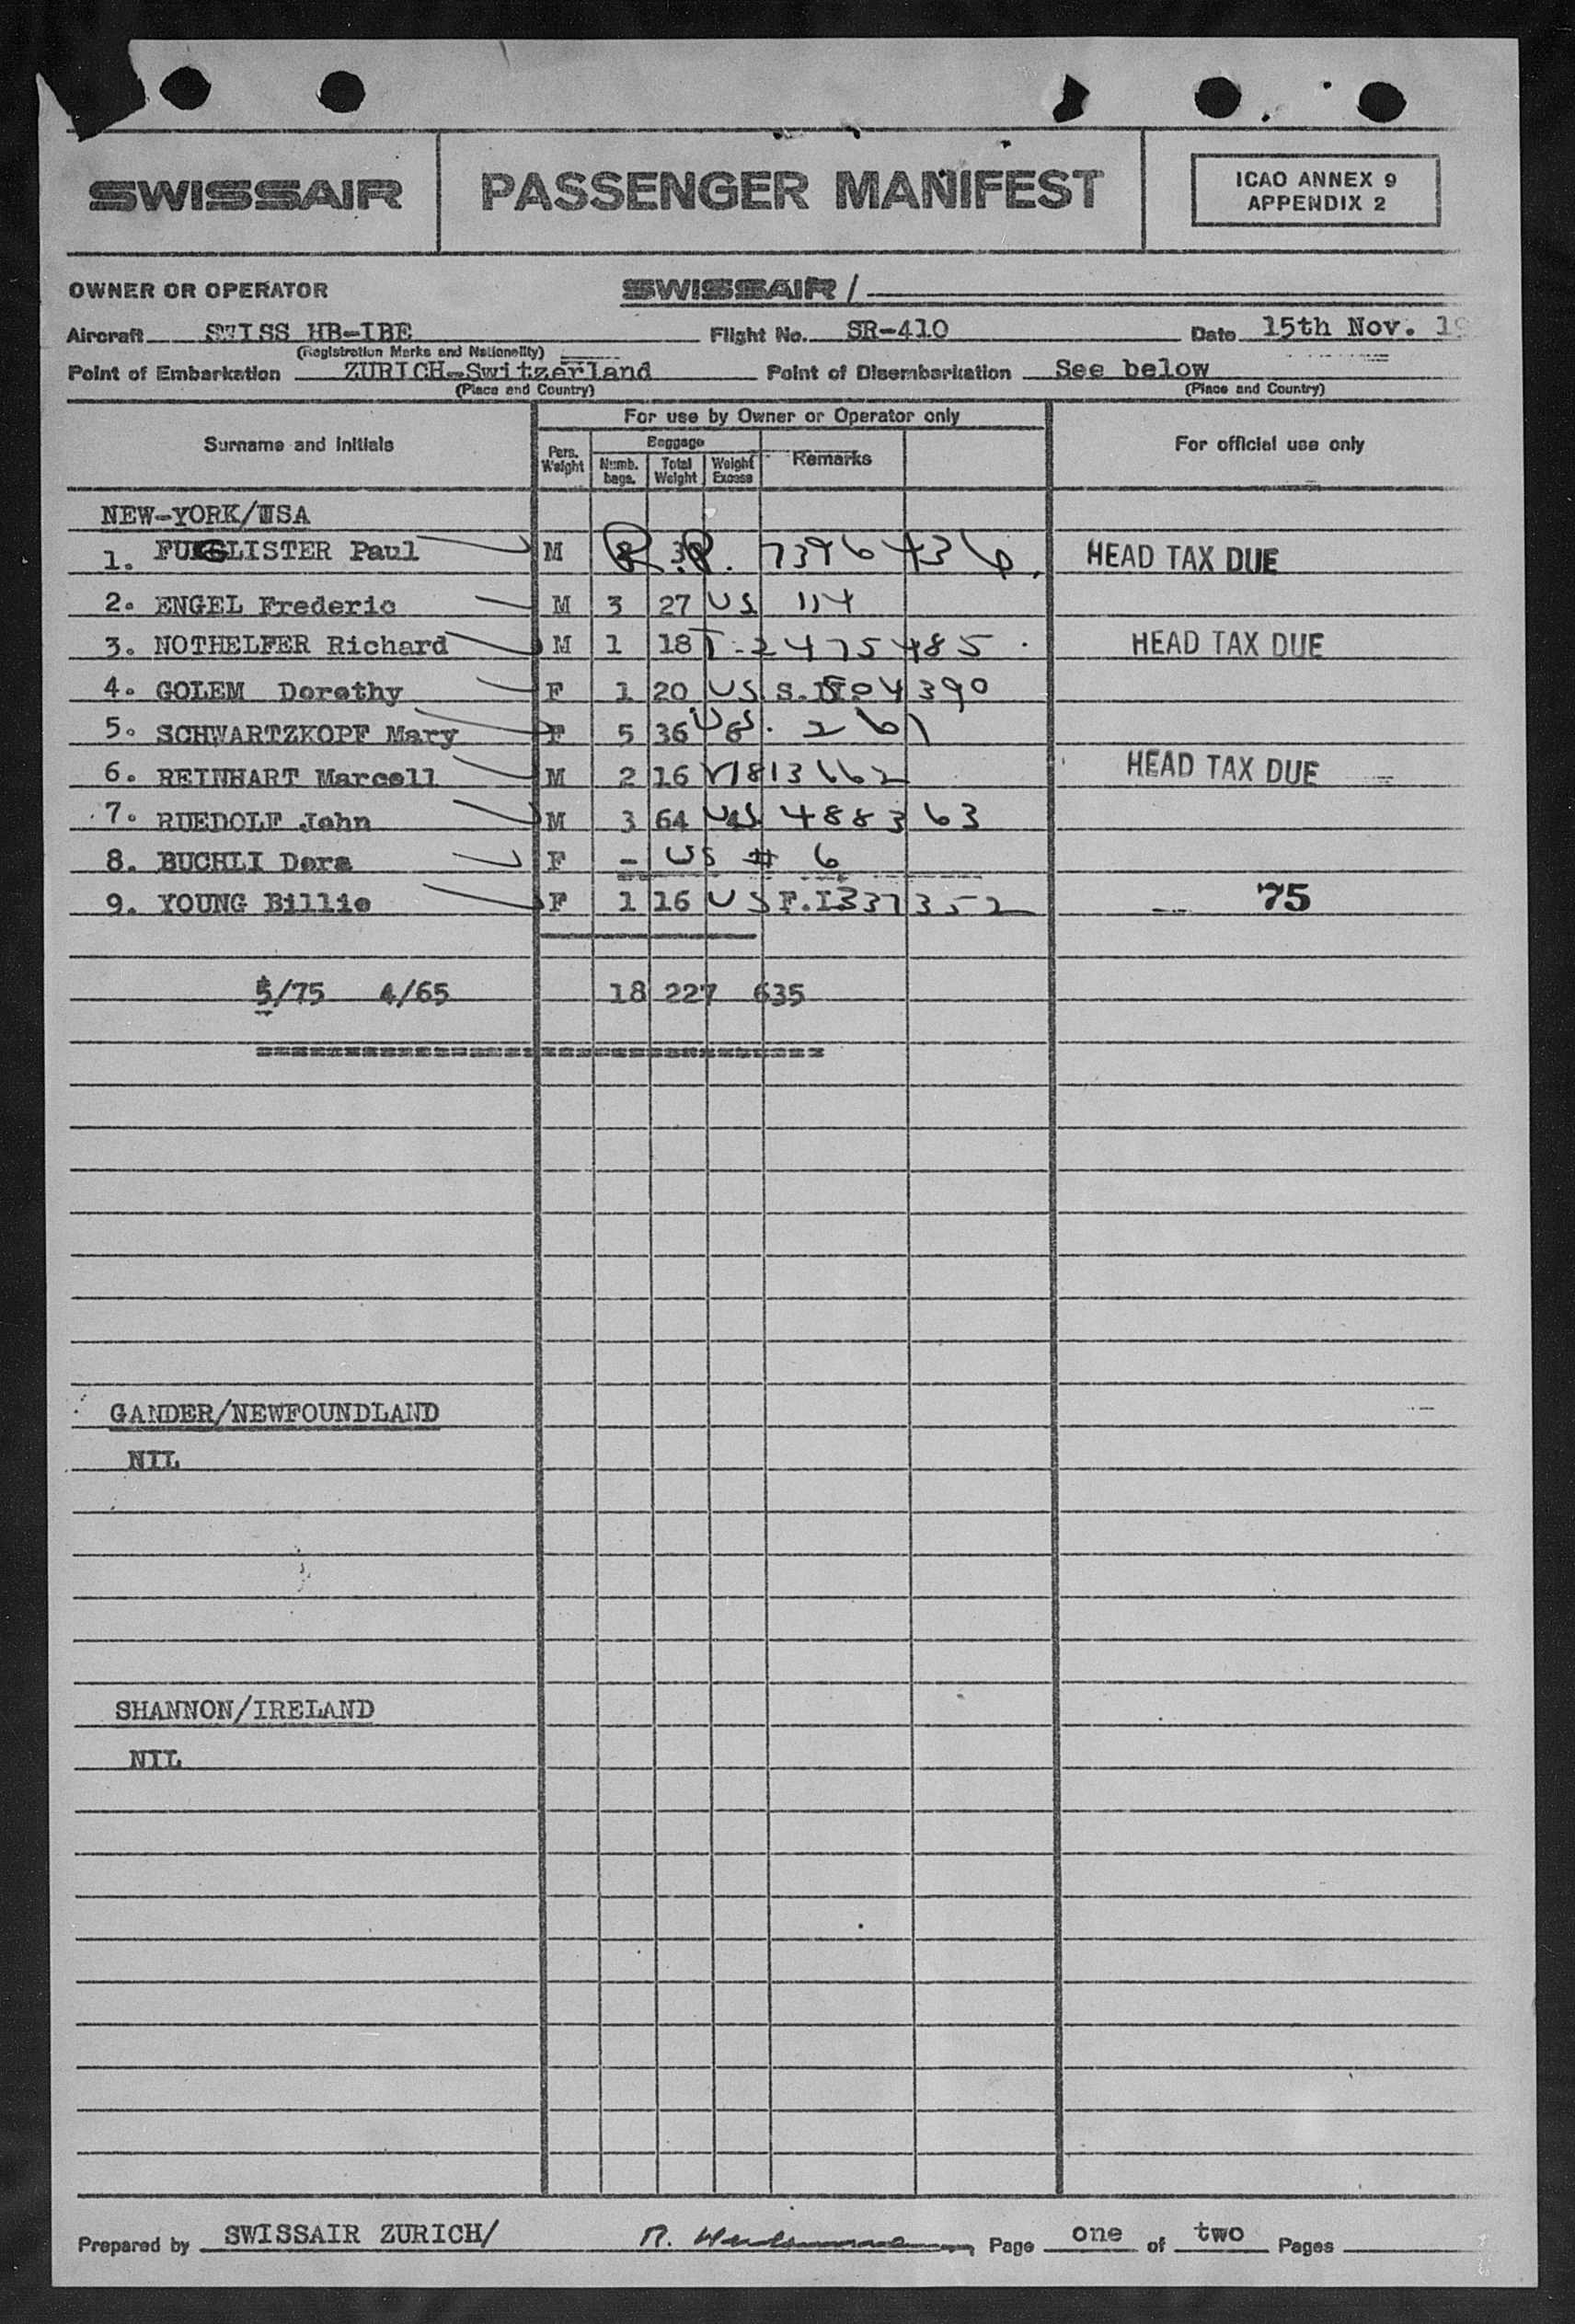 SWISSAIR PASSENGER MANIFEST ICAO ANNEX 9
APPENDIX 2
OWNER OR OPERATOR SWISSAIR /
Aircraft SWISS HB-IBE Flight No. SR-410 Date 15th Nov. 19
(Registration Marks and Nationality)
Point of Embarkation ZURICH-Switzerland Point of Disembarkation See below
(Place and Country) (Place and Country)
For use by Owner or Operator only
Surname and Initials Pers. Weight Baggage Remarks For official use only
Numb. bags. Total Weight Weight Excess
NEW-YORK/USA
1. FUEGLISTER Paul M 8 R.P. 7396436 HEAD TAX DUE
2. ENGEL Frederic M 3 27 US 114
3. NOTHELFER Richard M 1 18 T-2475485 HEAD TAX DUE
4. GOLEM Dorothy F 1 20 US S.N. 04390
5. SCHWARTZKOPF Mary F 5 36 US. 261
6. REINHART Marcell M 2 16 V1813662 HEAD TAX DUE
7. RUEDOLF John M 3 64 US 488363
8. BUCHLI Dora F - US # 6
9. YOUNG Billie F 1 16 US F.I337352 75
5/75 4/65 18 227 635
GANDER/NEWFOUNDLAND
NIL
SHANNON/IRELAND
NIL
Prepared by SWISSAIR ZURICH/ Page one of two Pages